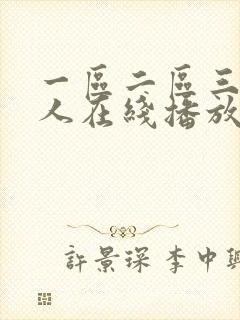 一區二區三
人在綫播放
許景琛 李中興